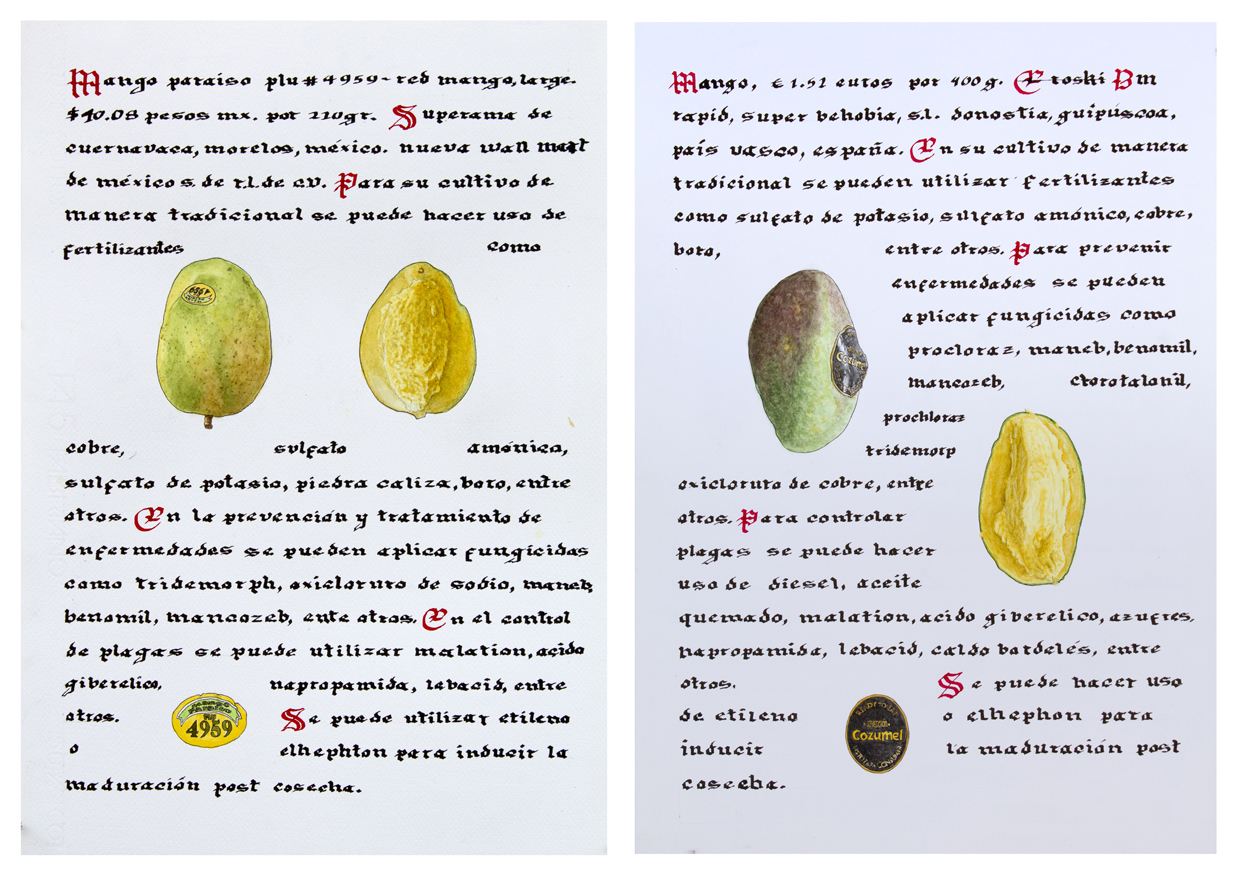 Mango paraiso plu # 4959 - red mango, large.
$40.08 pesos mx. por 210gr. Superama de
cuernavaca, morelos, méxico. nueva wall mart
de méxico s. de r.l. de c.v. Para su cultivo de
manera tradicional se puede hacer uso de
fertilizantes como
4959
cobre, sulfato amónico,
sulfato de potasio, piedra caliza, boro, entre
otros. En la prevención y tratamiento de
enfermedades se pueden aplicar fungicidas
como tridemorph, oxicloruro de sodio, maneb
benomil, mancozeb, ente otros. En el control
de plagas se puede utilizar malation, acido
giberelico, napropamida, lebacid, entre
otros. Se puede utilizar etileno
mango
paraiso
PLU
4959
o elhephton para inducir la
maduración post cosecha.
Mango, € 1.52 euros por 400 g. Eroski Bm
rapid, super behobia, s.l. donostia, guipúscoa,
país vasco, españa. En su cultivo de manera
tradicional se pueden utilizar fertilizantes
como sulfato de potasio, sulfato amónico, cobre,
boro, entre otros. Para prevenir
enfermedades se pueden
aplicar fungicidas como
procloraz, maneb, benomil,
mancozeb, clorotalonil,
Cozumel
prochloraz
tridemorp
oxicloruro de cobre, entre
otros. Para controlar
plagas se puede hacer
uso de diesel, aceite
quemado, malation, acido giberelico, azufres,
napropamida, lebacid, caldo bordelés, entre
otros. Se puede hacer uso
de etileno o elhephon para
Cozumel
inducir la maduración post
cosecha.